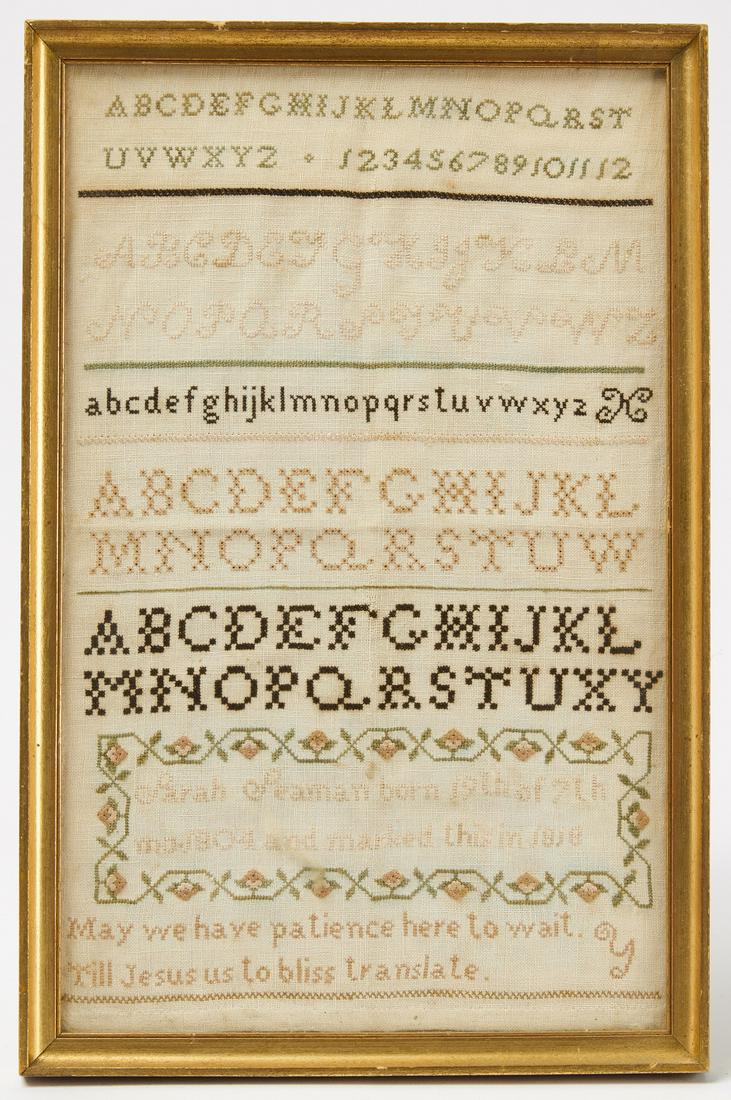 ABCDEFGHIJKLMNOPQRST
UVWXYZ 123456789101112
ABCDEFGHIJKLM
NOPQRSTUVWZ
abcdefghijklmnopqrstuvwxyz
ABCDEFGHIJKL
MNOPQRSTUW
ABCDEFGHIJKL
MNOPQRSTUXY
Sarah Seaman born 19th of 7th
mo. 1804 and marked this in 1818
May we have patience here to wait. Y
Till Jesus us to bliss translate.